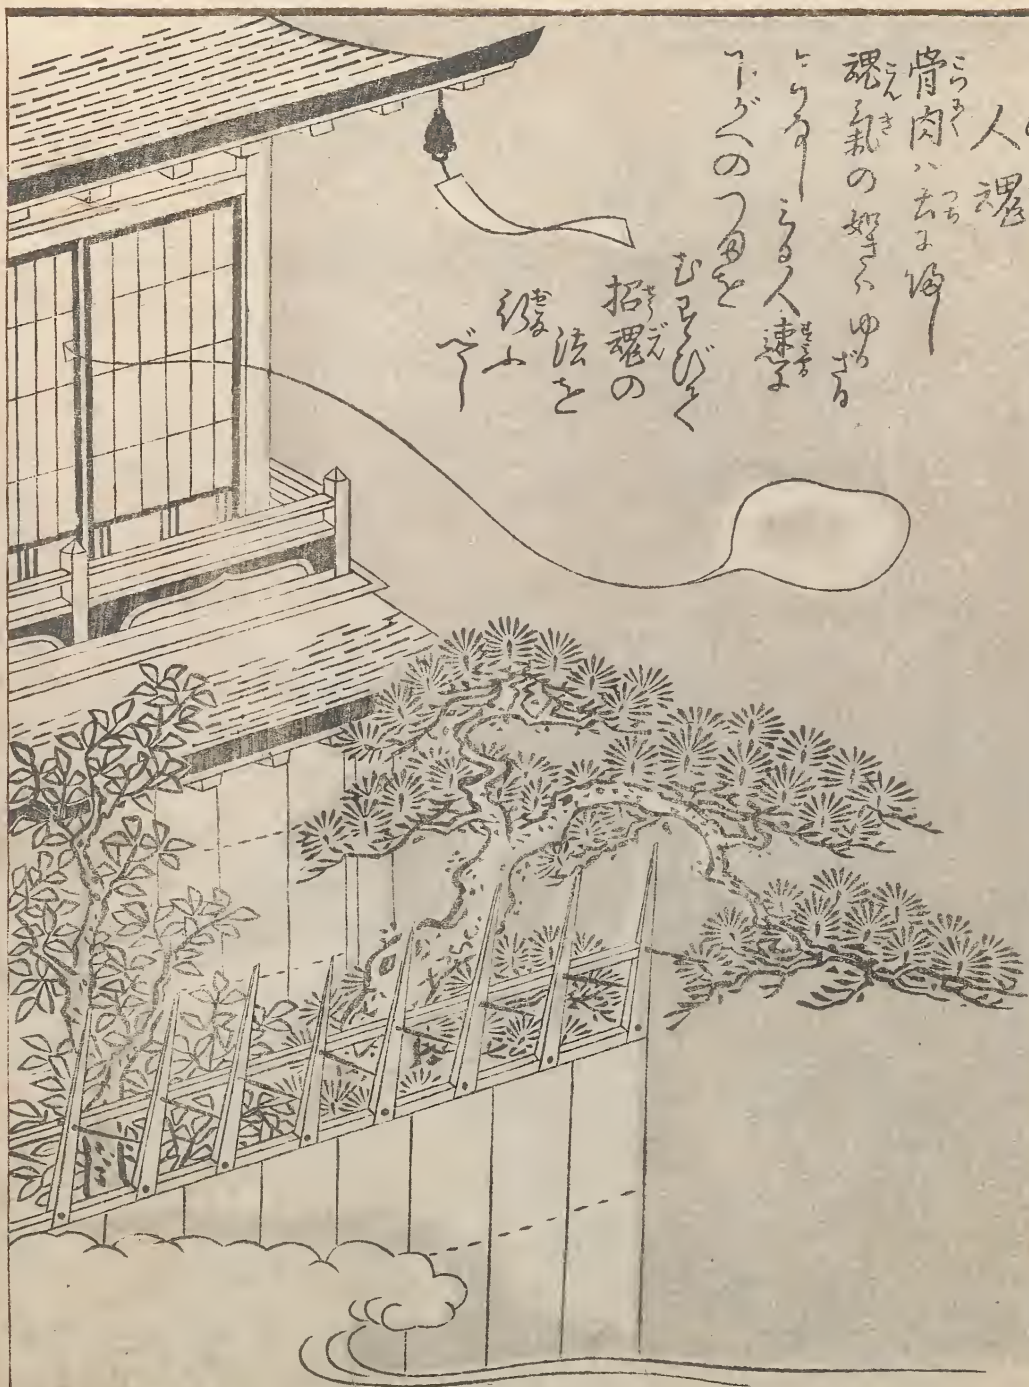 人魂
骨肉ハ土に歸し
魂氣の如きハゆかざる
ことなしみる人速に
下がへのつまを
むすびて
招魂の
法を
行ふ
べし